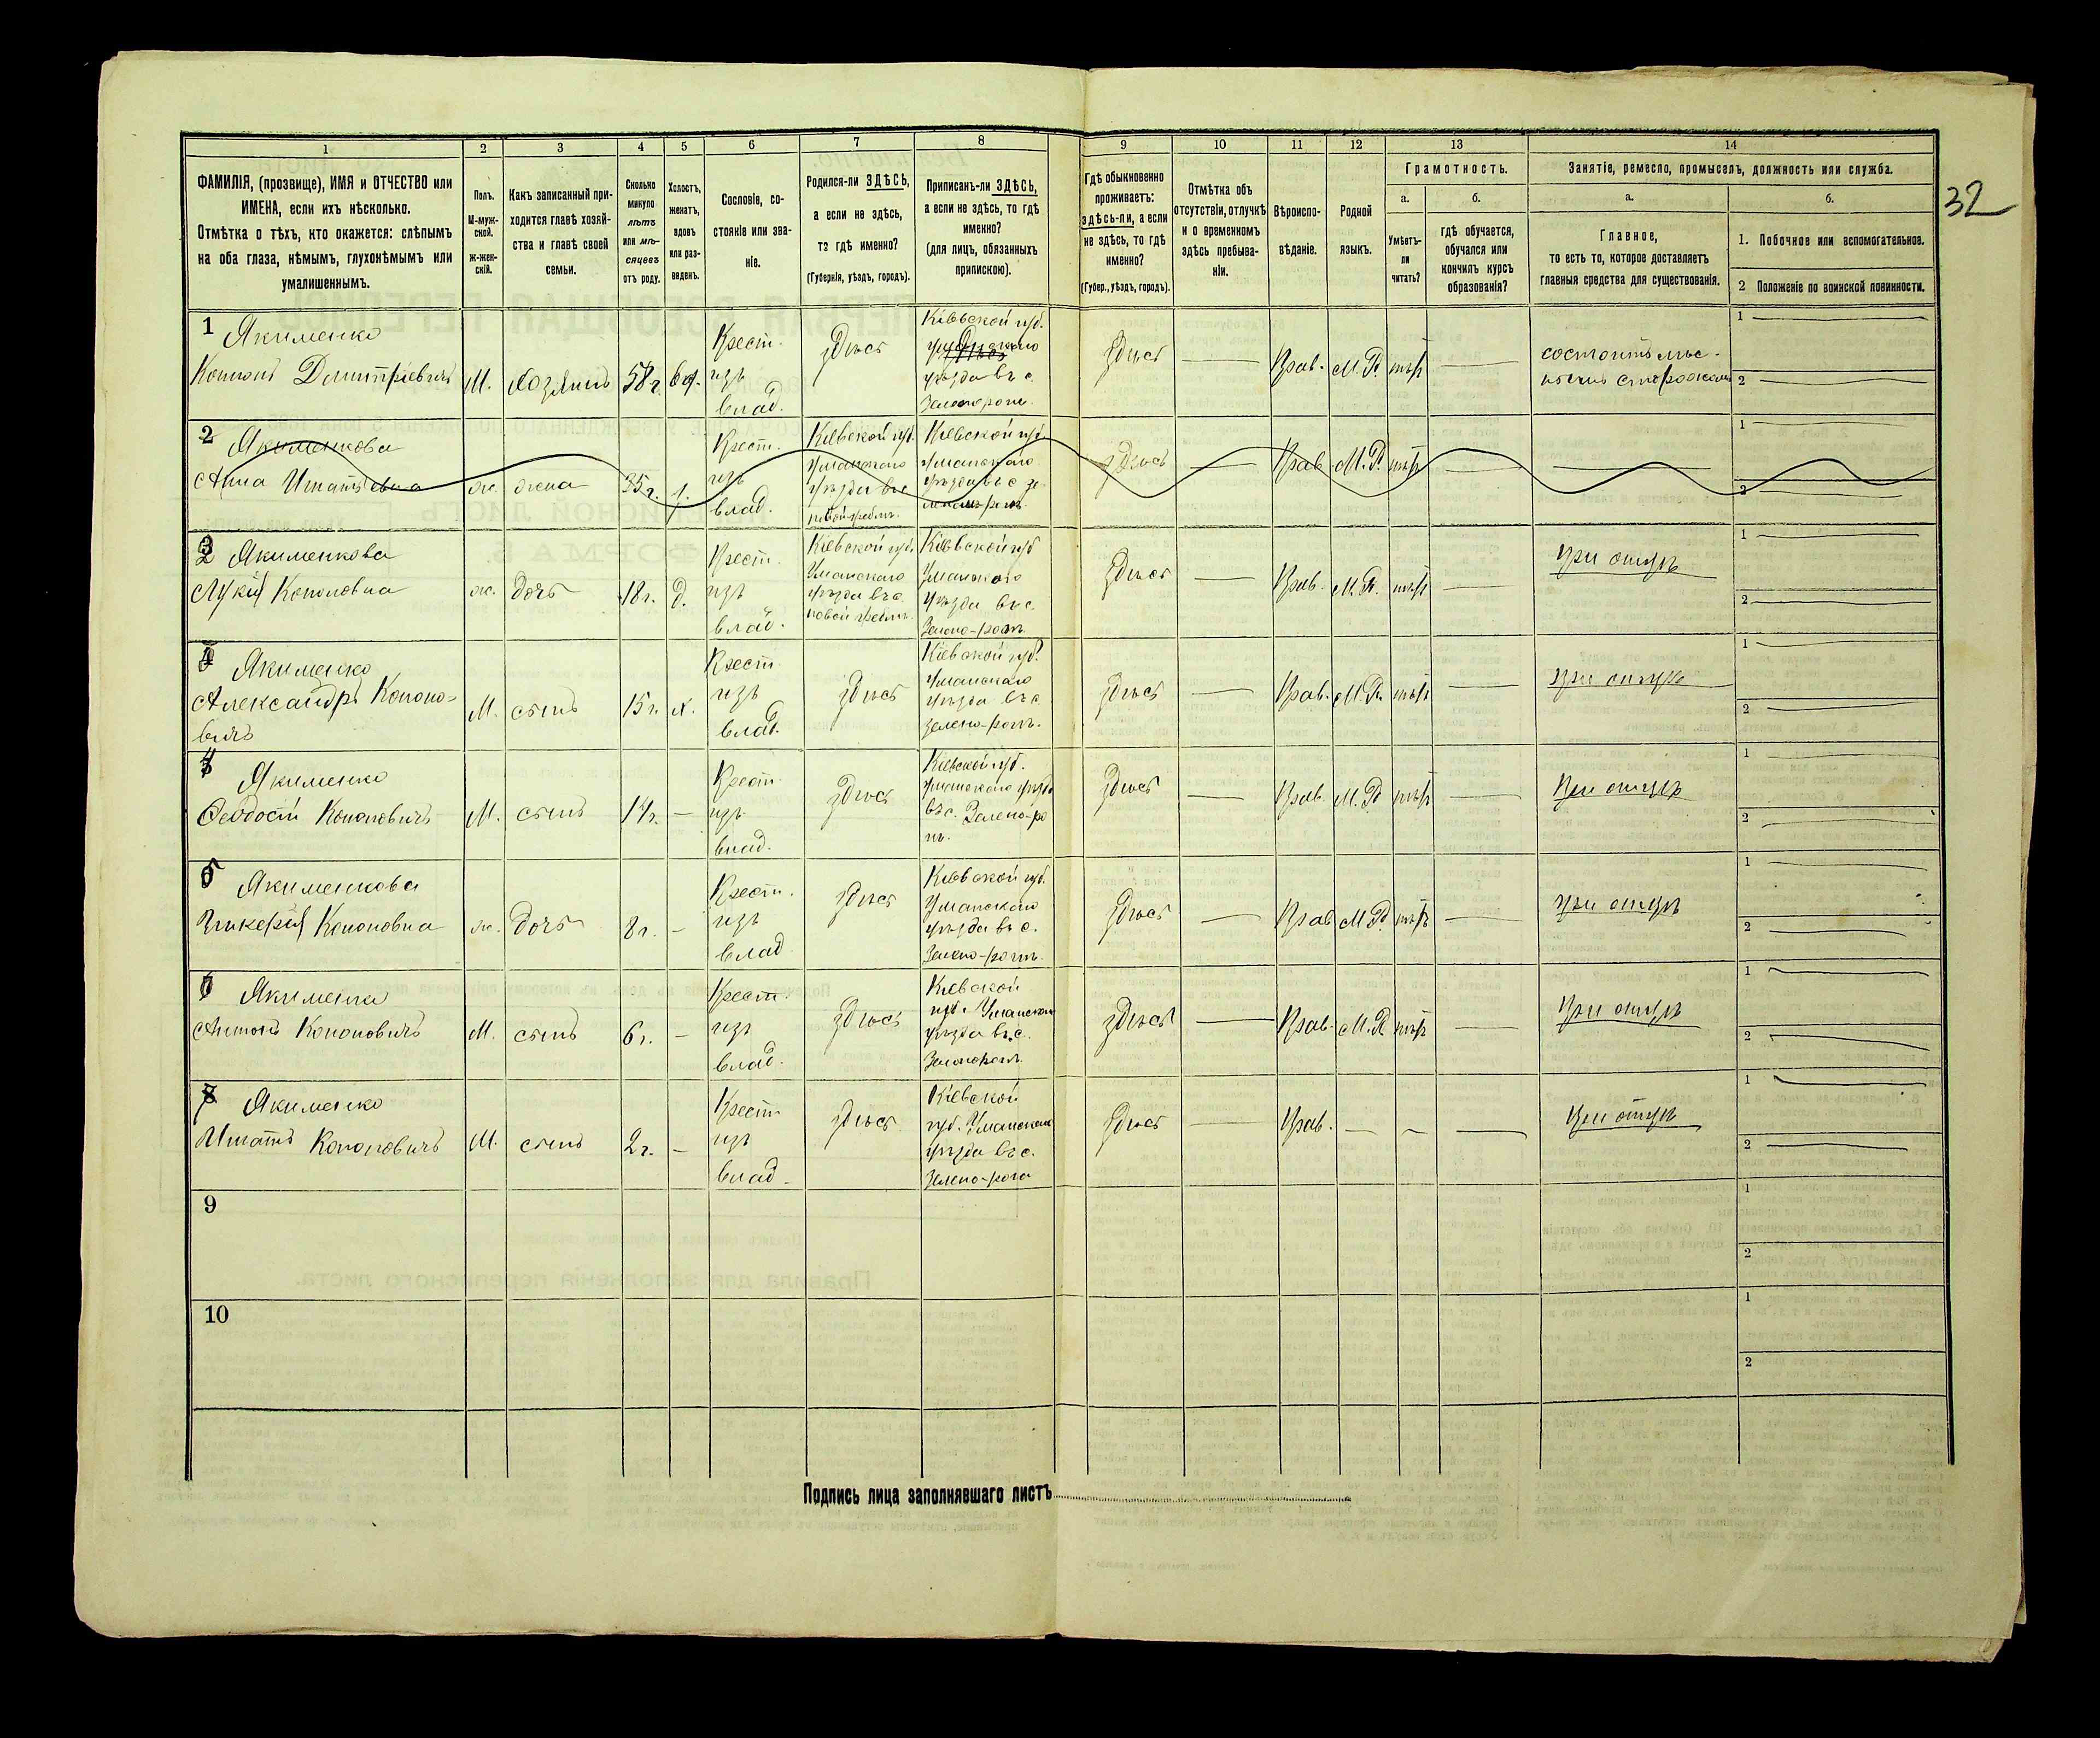 32
1 2 3 4 5 6 7 8 9 10 11 12 13 14
ФАМИЛІЯ, (прозвище), ИМЯ и ОТЧЕСТВО или
ИМЕНА, если ихъ нѣсколько.
Отмѣтка о тѣхъ, кто окажется: слѣпымъ
на оба глаза, нѣмымъ, глухонѣмымъ или
умалишеннымъ.
Полъ.
М-муж-
ской.
ж-жен-
скій.
Какъ записанный при-
ходится главѣ хозяй-
ства и главѣ своей
семьи.
Сколько
минуло
лѣтъ
или мѣ-
сяцевъ
отъ роду.
Холостъ,
женатъ,
вдовъ
или раз-
веденъ.
Сословіе, со-
стояніе или зва-
ніе.
Родился-ли ЗДѢСЬ,
а если не здѣсь,
то гдѣ именно?
(Губернія, уѣздъ, городъ).
Приписанъ-ли ЗДѢСЬ,
а если не здѣсь, то гдѣ
именно?
(для лицъ, обязанныхъ
припискою).
Гдѣ обыкновенно
проживаетъ:
здѣсь-ли, а если
не здѣсь, то гдѣ
именно?
(Губер., уѣздъ, городъ).
Отмѣтка объ
отсутствіи, отлучкѣ
и о временномъ
здѣсь пребыва-
ніи.
Вѣроиспо-
вѣданіе.
Родной
языкъ.
Грамотность.
а.
Умѣетъ-
ли
читать?
б.
гдѣ обучается,
обучался или
кончилъ курсъ
образованія?
Занятіе, ремесло, промыселъ, должность или служба.
а.
Главное,
то есть то, которое доставляетъ
главныя средства для существованія.
б.
1. Побочное или вспомогательное.
2 Положеніе по воинской повинности.
1 Якименко
Кононъ Дмитріевичъ
М. хозяинъ 58 г. вд.
Крест.
изъ
влад.
здѣсь
Кіевской губ.
уѣзда въ с.
здѣсь Прав. М. Р. нѣтъ
1
2
2 Якименкова
Анна Игнатьевна
ж. жена 35 г.
Крест.
изъ
влад.
Кіевской губ.
Уманскаго
уѣзда въ с.
Кіевской губ.
Уманскаго
уѣзда въ с. Зе-
здѣсь Прав. М. Р. нѣтъ
1
2
3 Якименкова
Лукія Кононовна
ж. дочь 18 г. д.
Крест.
изъ
влад.
Кіевской губ.
Уманскаго
уѣзда въ с.
Кіевской губ.
Уманскаго
уѣзда въ с.
здѣсь Прав. М. Р. нѣтъ при отцѣ
1
2
4 Якименко
Александръ Кононо-
вичъ
М. сынъ 15 г. х.
Крест.
изъ
влад.
здѣсь
Кіевской губ.
Уманскаго
уѣзда въ с.
здѣсь Прав. М. Р. нѣтъ при отцѣ
1
2
Якименко
Ѳеодосій Кононовичъ
М. сынъ –
Крест.
изъ
влад.
здѣсь
Кіевской губ.
Уманскаго уѣзда
въ с. Зелено-ро
здѣсь Прав. М. Р. нѣтъ при отцѣ
1
2
Якименкова
Гликерія Кононовна
ж. дочь 8 г. –
Крест.
изъ
влад.
здѣсь
Кіевской губ.
Уманскаго
уѣзда въ с.
здѣсь Прав. М. Р. нѣтъ при отцѣ
1
2
Якименко
Антонъ Кононовичъ
М. сынъ 6 г. –
Крест.
изъ
влад.
здѣсь
Кіевской
губ. Уманскаго
уѣзда въ с.
здѣсь Прав. М. Р. нѣтъ при отцѣ
1
2
Якименко
Игнатъ Кононовичъ
М. сынъ 2 г. –
Крест.
изъ
влад.
здѣсь
Кіевской
губ. Уманскаго
уѣзда въ с.
Зелено-рога
здѣсь Прав. – – – при отцѣ
1
2
9
1
2
10
1
2
Подпись лица заполнявшаго листъ